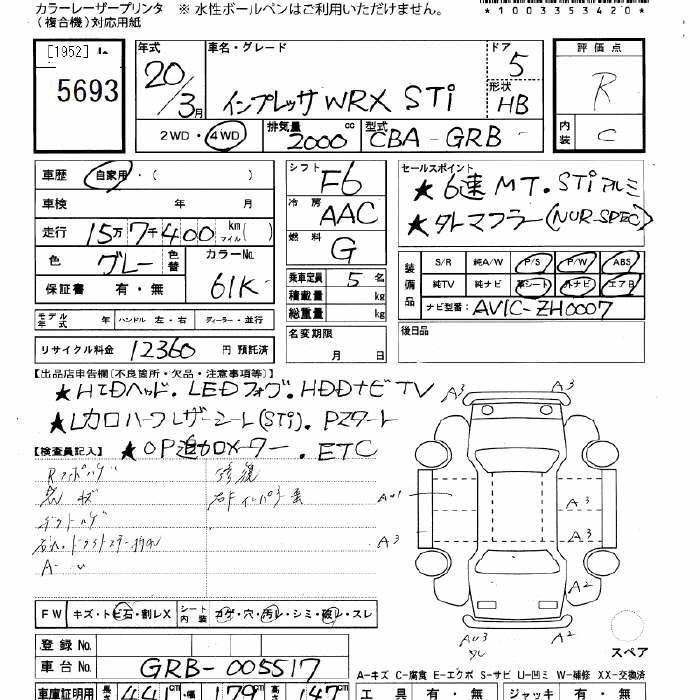 カラーレーザープリンタ ※ 水性ボールペンはご利用いただけません。
(複合機)対応用紙
*1003353420*
[1952] 年式 車名・グレード ドア 評価点
5693 20/3月 インプレッサ WRX STi 5 R
形状 HB
2WD・4WD 排気量 2000 cc 型式 CBA-GRB 内装 C
車歴 自家用・( ) シフト F6 セールスポイント
車検 年 月 冷房 AAC ★6速MT.STiアルミ
走行 15万7千400 km マイル( ) 燃料 G ★タレマフラー(NUR SPEC)
色 グレー 色替 カラーNo. 61K
装備品 S/R 純A/W P/S P/W ABS
保証書 有・無 乗車定員 5名 純TV 純ナビ 革シート 外ナビ エアB
積載量 kg ナビ型番: AVIC-ZH0007
モデル年式 年 ハンドル 左・右 ディーラー・並行 総重量 kg
後日品
リサイクル料金 12360 円 預託済 名変期限 月 日
【出品店申告欄(不良箇所・欠品・注意事項等)】
★HIDヘッド.LEDフォグ.HDDナビTV
★レカロハーフレザーシート(STi).Pスタート
【検査員記入】 ★OP追加メーター.ETC
修復
A3 A3
A3
A3 A3
A2
A2
FW キズ・トビ石・割レX シート内装 コゲ・穴・汚レ・シミ・破レ・スレ
スペア
登録No.
車台No. GRB-005517
A-キズ C-腐食 E-エクボ S-サビ U-凹ミ W-補修 XX-交換済
車庫証明用 長さ 441 cm 幅 179 cm 高さ 147 cm 工具 有・無 ジャッキ 有・無